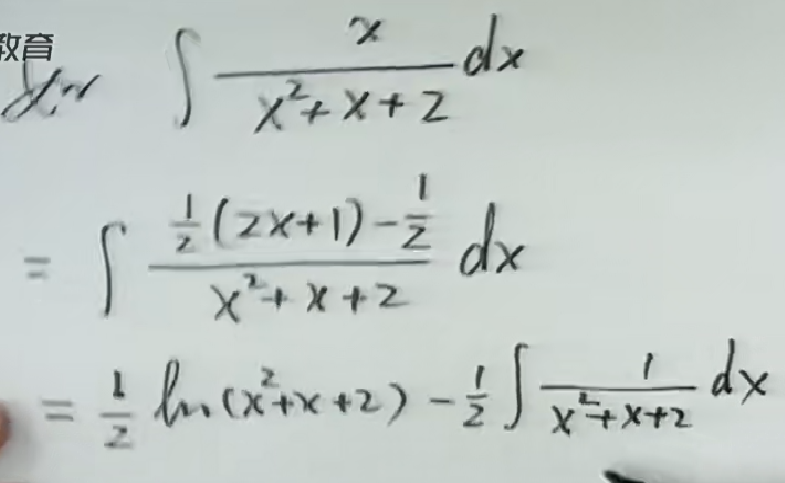 教育
∫ x/(x²+x+2) dx
= ∫ (½(2x+1) - ½)/(x²+x+2) dx
= ½ ln(x²+x+2) - ½ ∫ 1/(x²+x+2) dx